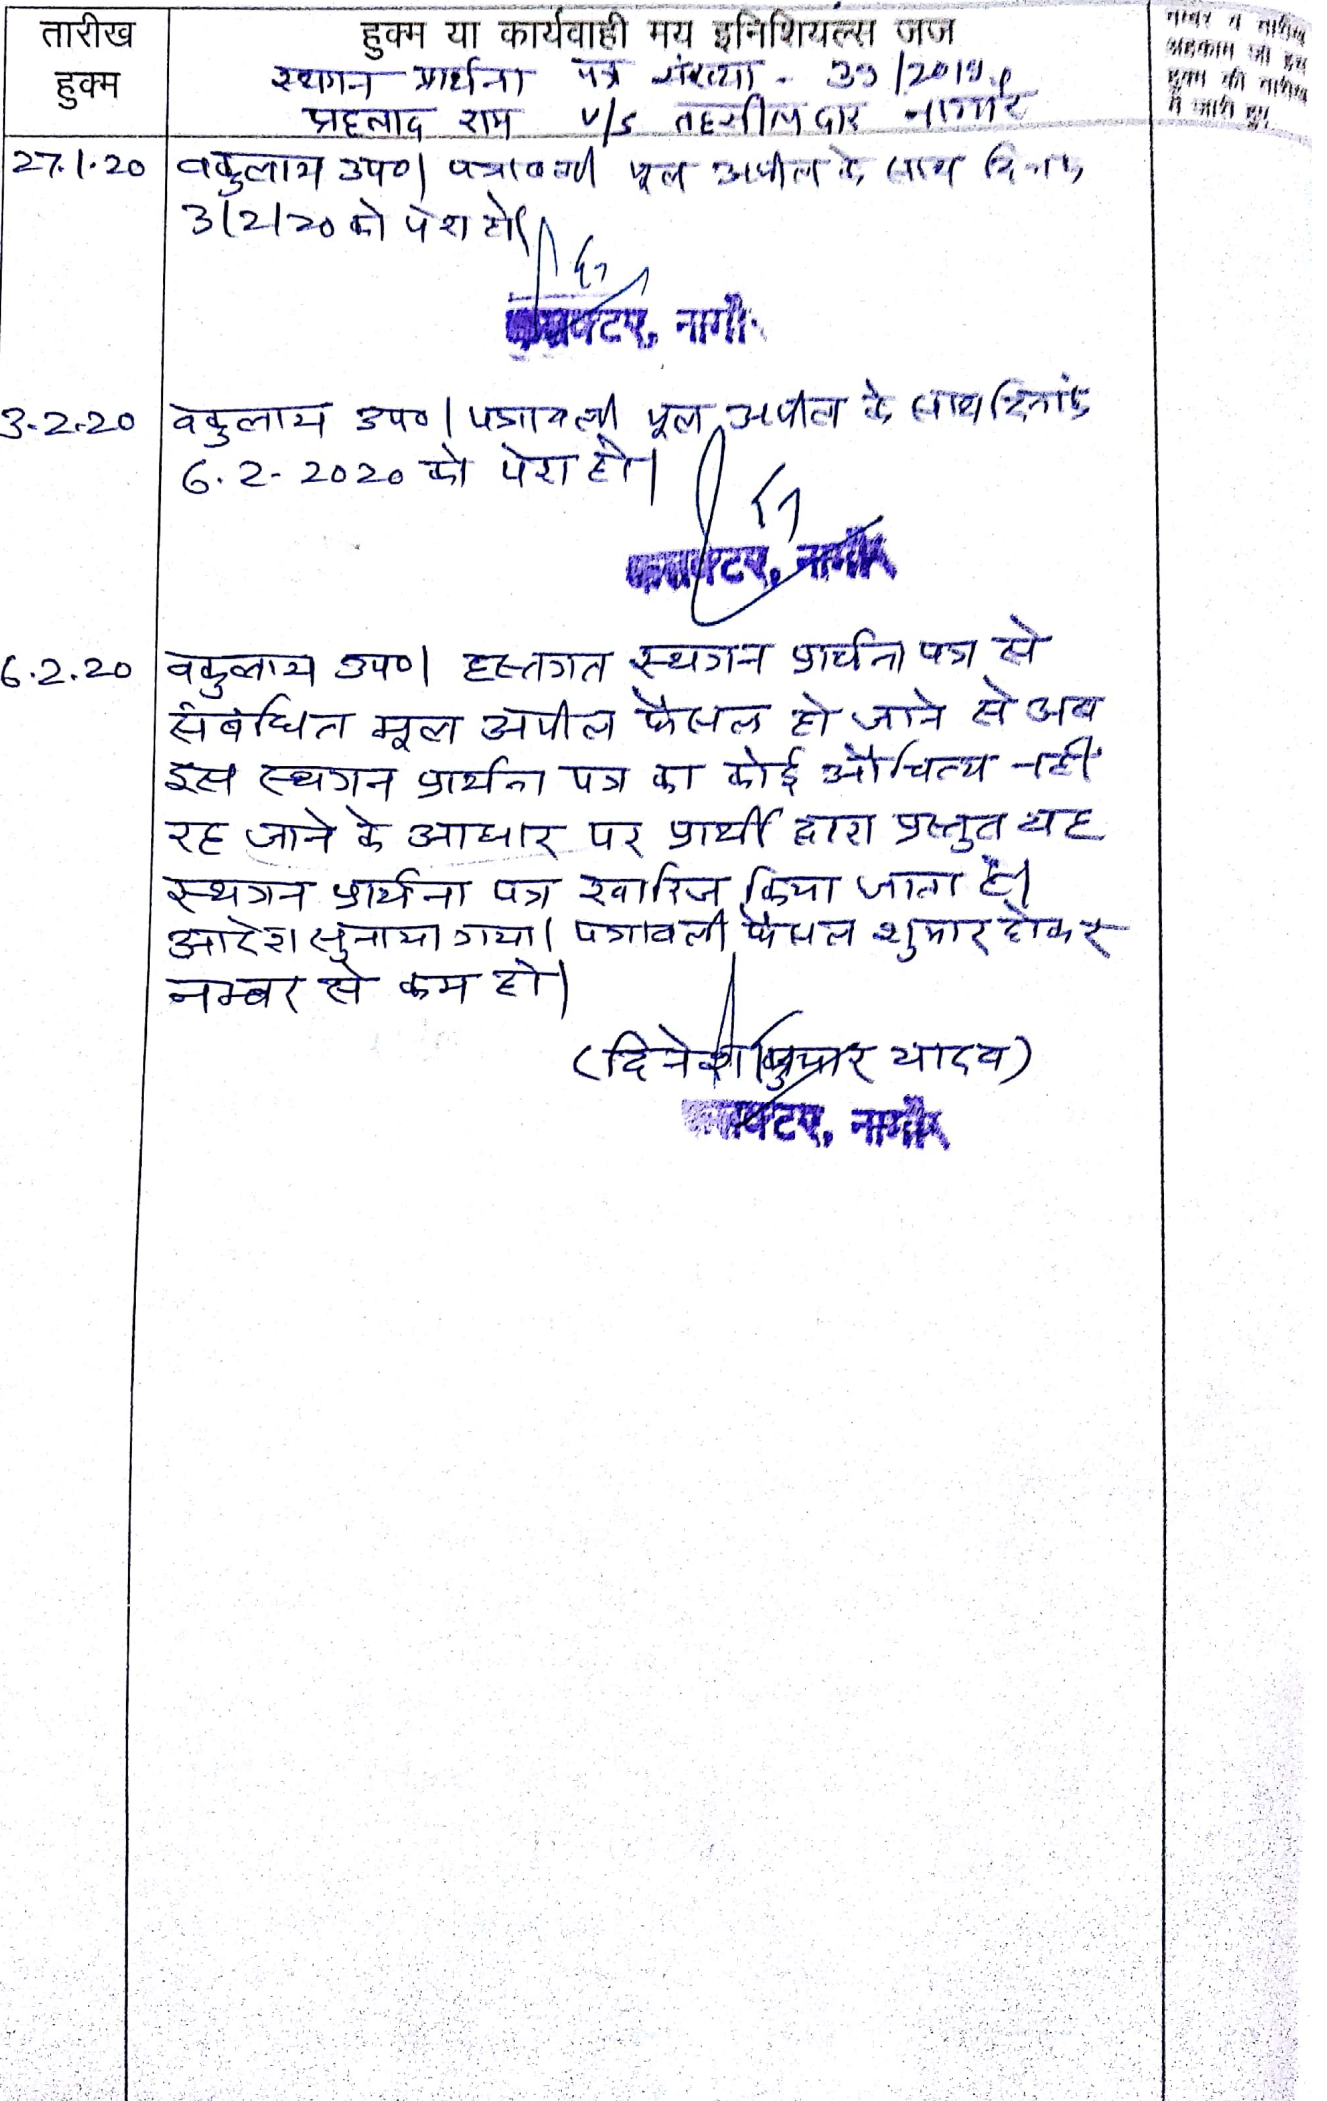 तारीख
हुक्म
हुक्म या कार्यवाही मय इनिशियल्स जज
स्थगन प्रार्थना पत्र संख्या - 33/2019
प्रहलाद राम v/s तहसीलदार नागौर
नम्बर व तारीख
अहकाम जो इस
हुक्म की तारीख
में जारी हुए
27.1.20 वकुलाय उप०। पत्रावली मूल अपील के साथ दिनांक
3/2/20 को पेश हो।
कलक्टर, नागौर
3.2.20 वकुलाय उप०। पत्रावली मूल अपील के साथ दिनांक
6.2-2020 को पेश हो।
कलक्टर, नागौर
6.2.20 वकुलाय उप०। हस्तगत स्थगन प्रार्थना पत्र से
संबंधित मूल अपील फैसल हो जाने से अब
इस स्थगन प्रार्थना पत्र का कोई औचित्य नहीं
रह जाने के आधार पर प्रार्थी द्वारा प्रस्तुत यह
स्थगन प्रार्थना पत्र खारिज किया जाता है।
आदेश सुनाया गया। पत्रावली फैसल शुमार होकर
नम्बर से कम हो।
(दिनेश कुमार यादव)
कलक्टर, नागौर